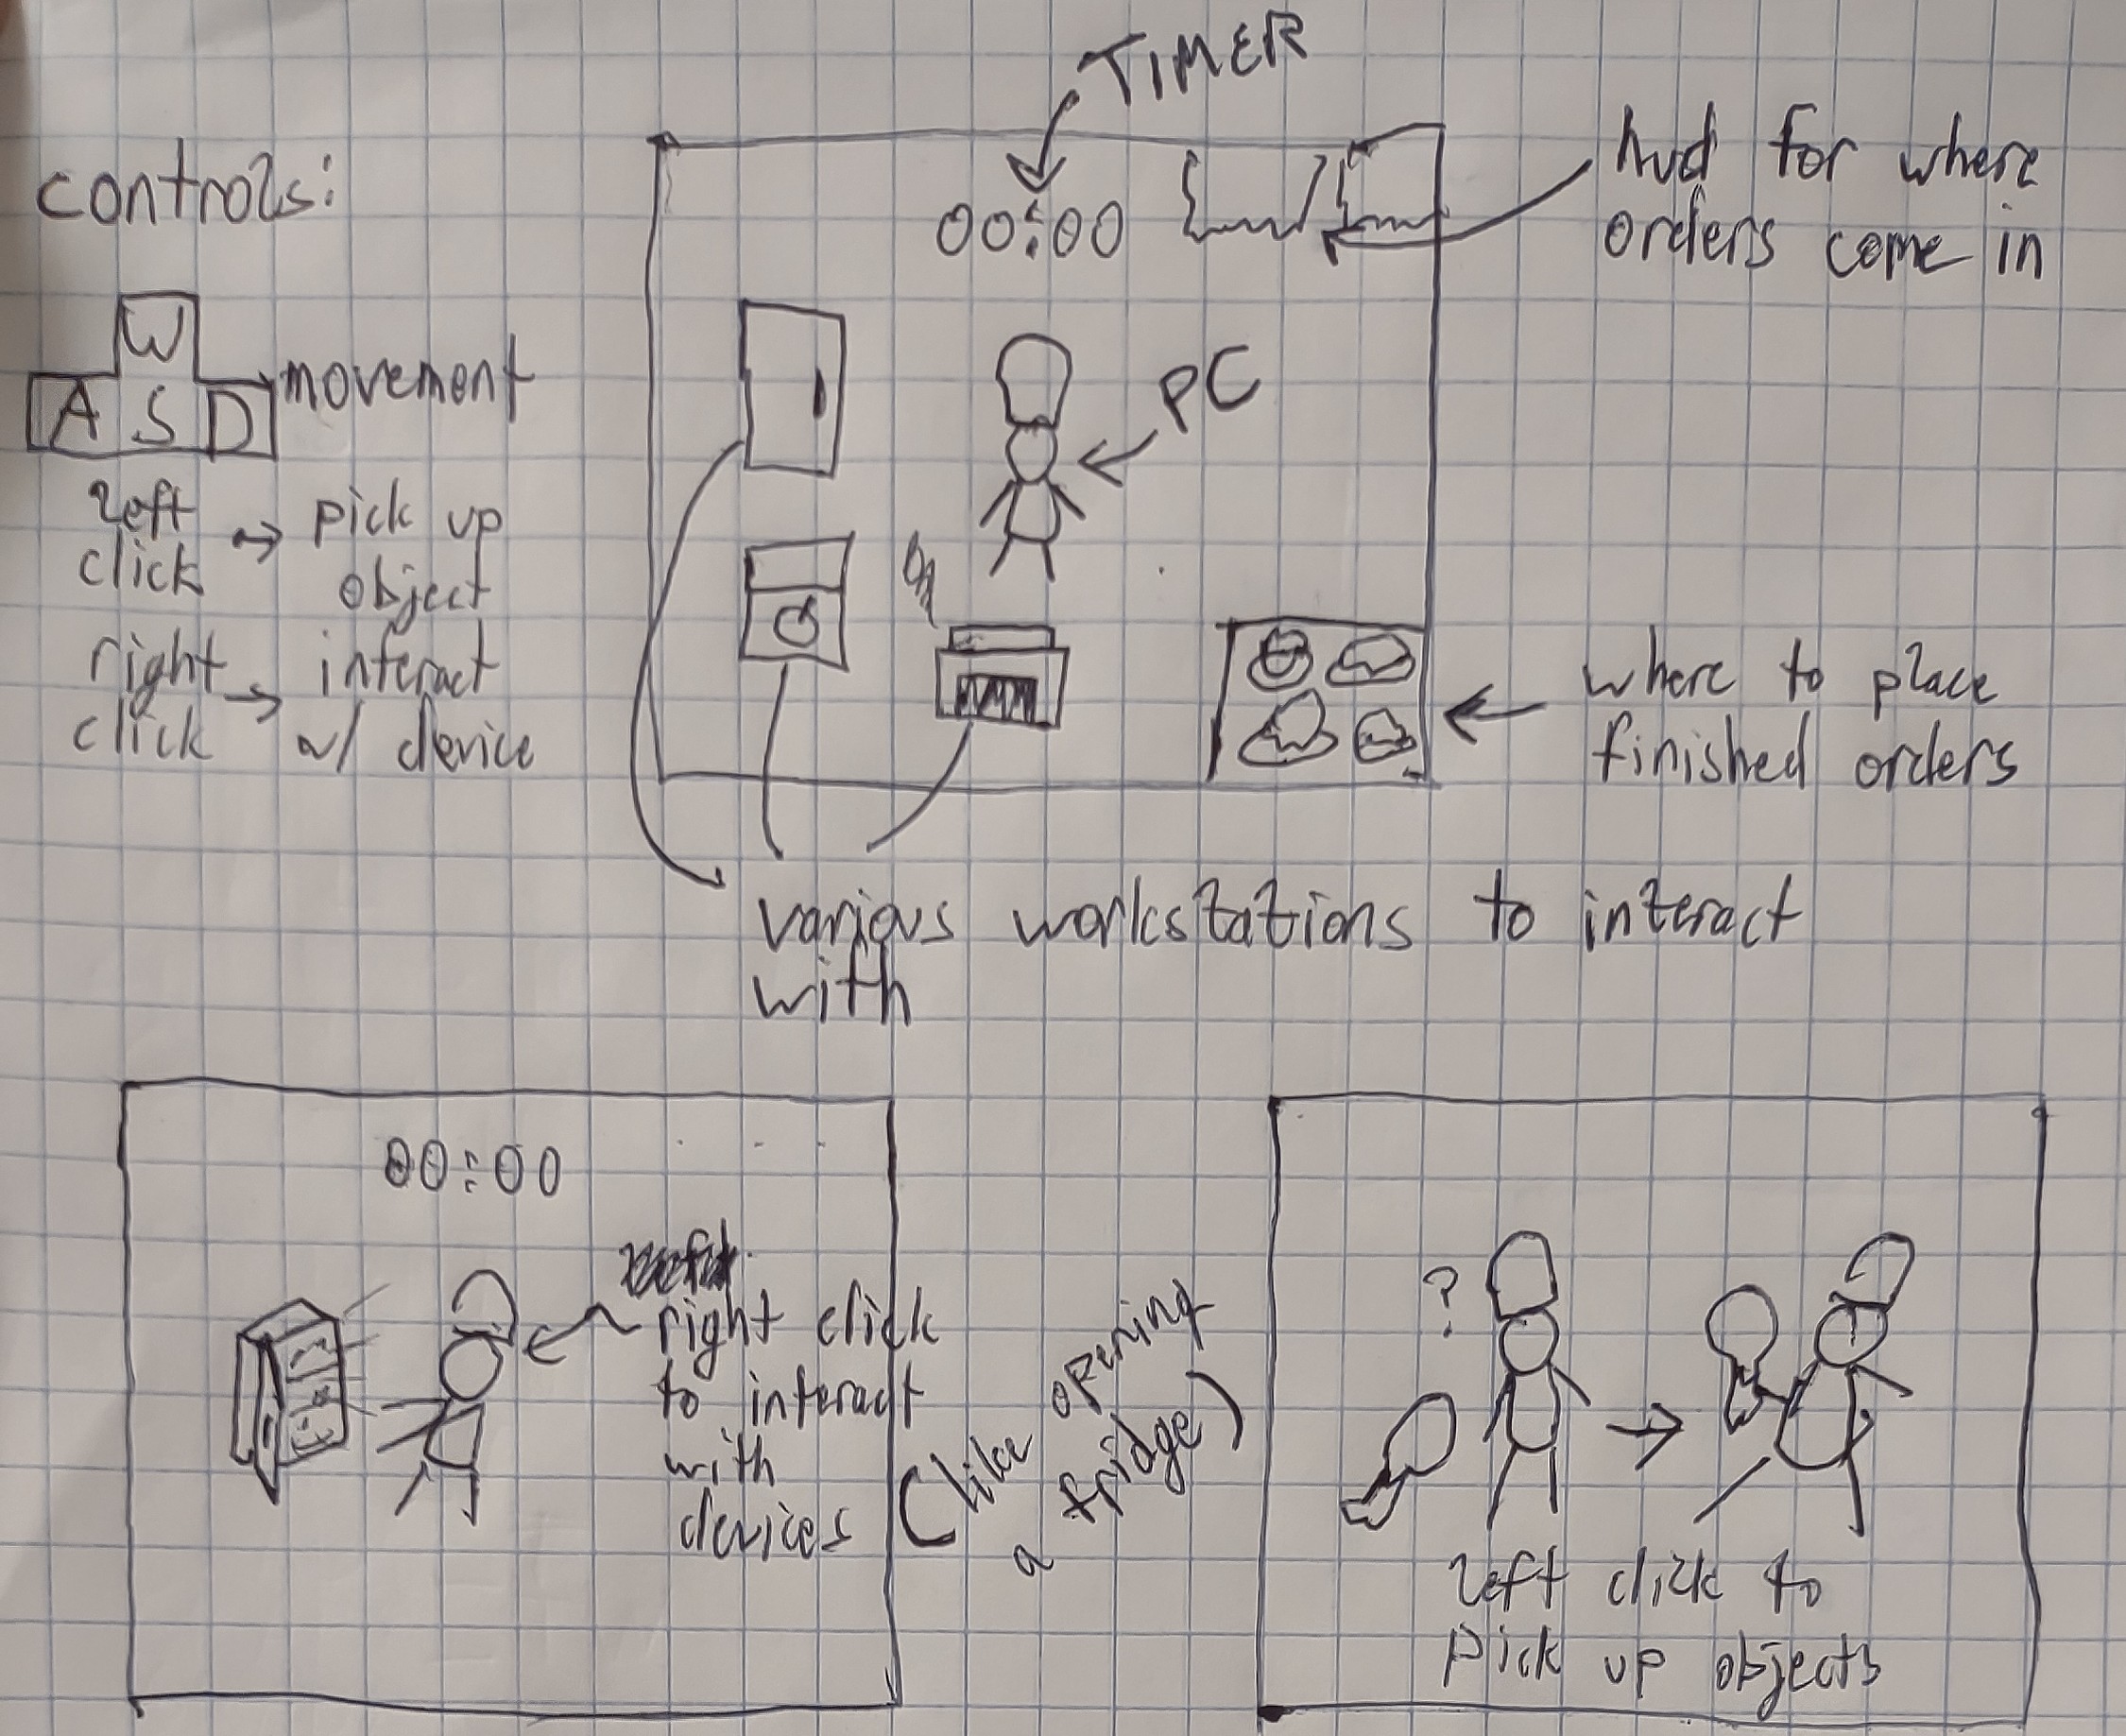 TIMER
controls:
00:00
hud for where
orders come in
W
A S D
movement
PC
left
click → pick up
object
right
click → interact
w/ device
where to place
finished orders
various workstations to interact
with
00:00
right click
to interact
with
devices
(like opening
a fridge)
?
→
left click to
pick up objects